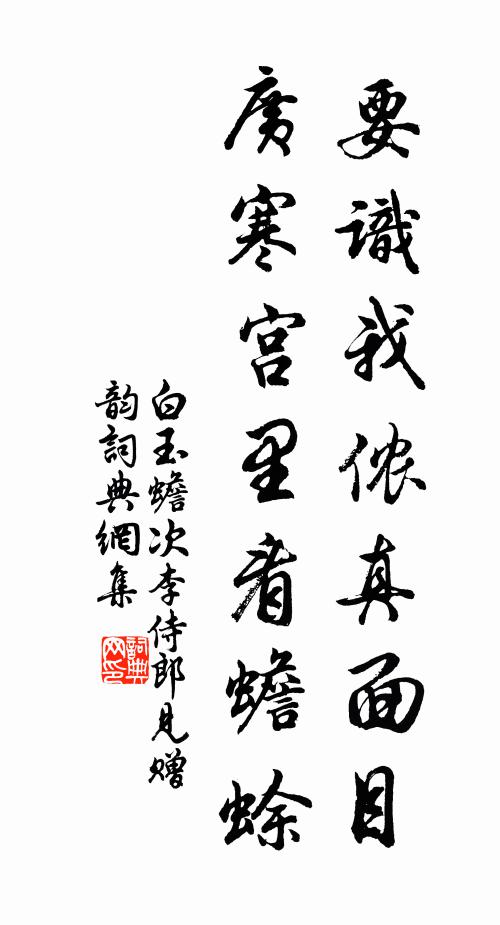 要識我侬真面目
廣寒宮里看蟾蜍
白玉蟾次李侍郎見贈
韵詞典網集
詞典
网印